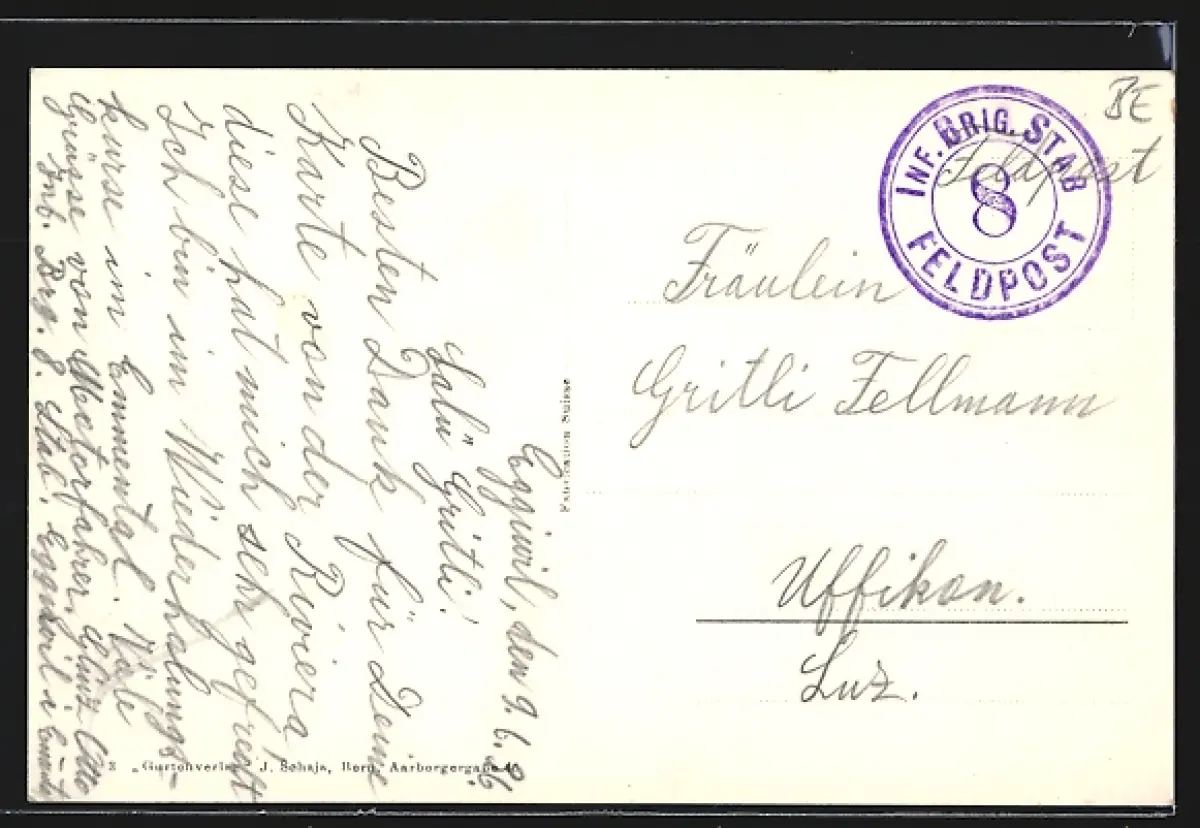 Eggiwil, den 9. 6.
Salü Gritli!
Besten Dank für Deine
Karte von der Riviera
diese hat mich sehr gefreut
Ich bin im Wiederholungs-
kurse im Emmental. Viele
Grüsse von Motorfahrer, Glünz Otto
Inf. Brg. 8. Stab. Eggiwil i.
BE
Feldpost
INF. BRIG. STAB
8
FELDPOST
Fräulein
Gritli Fellmann
Uffikon.
Luz.
Fabrication Suisse
„Gurtenverlag" J. Schaja, Bern, Aarbergergasse